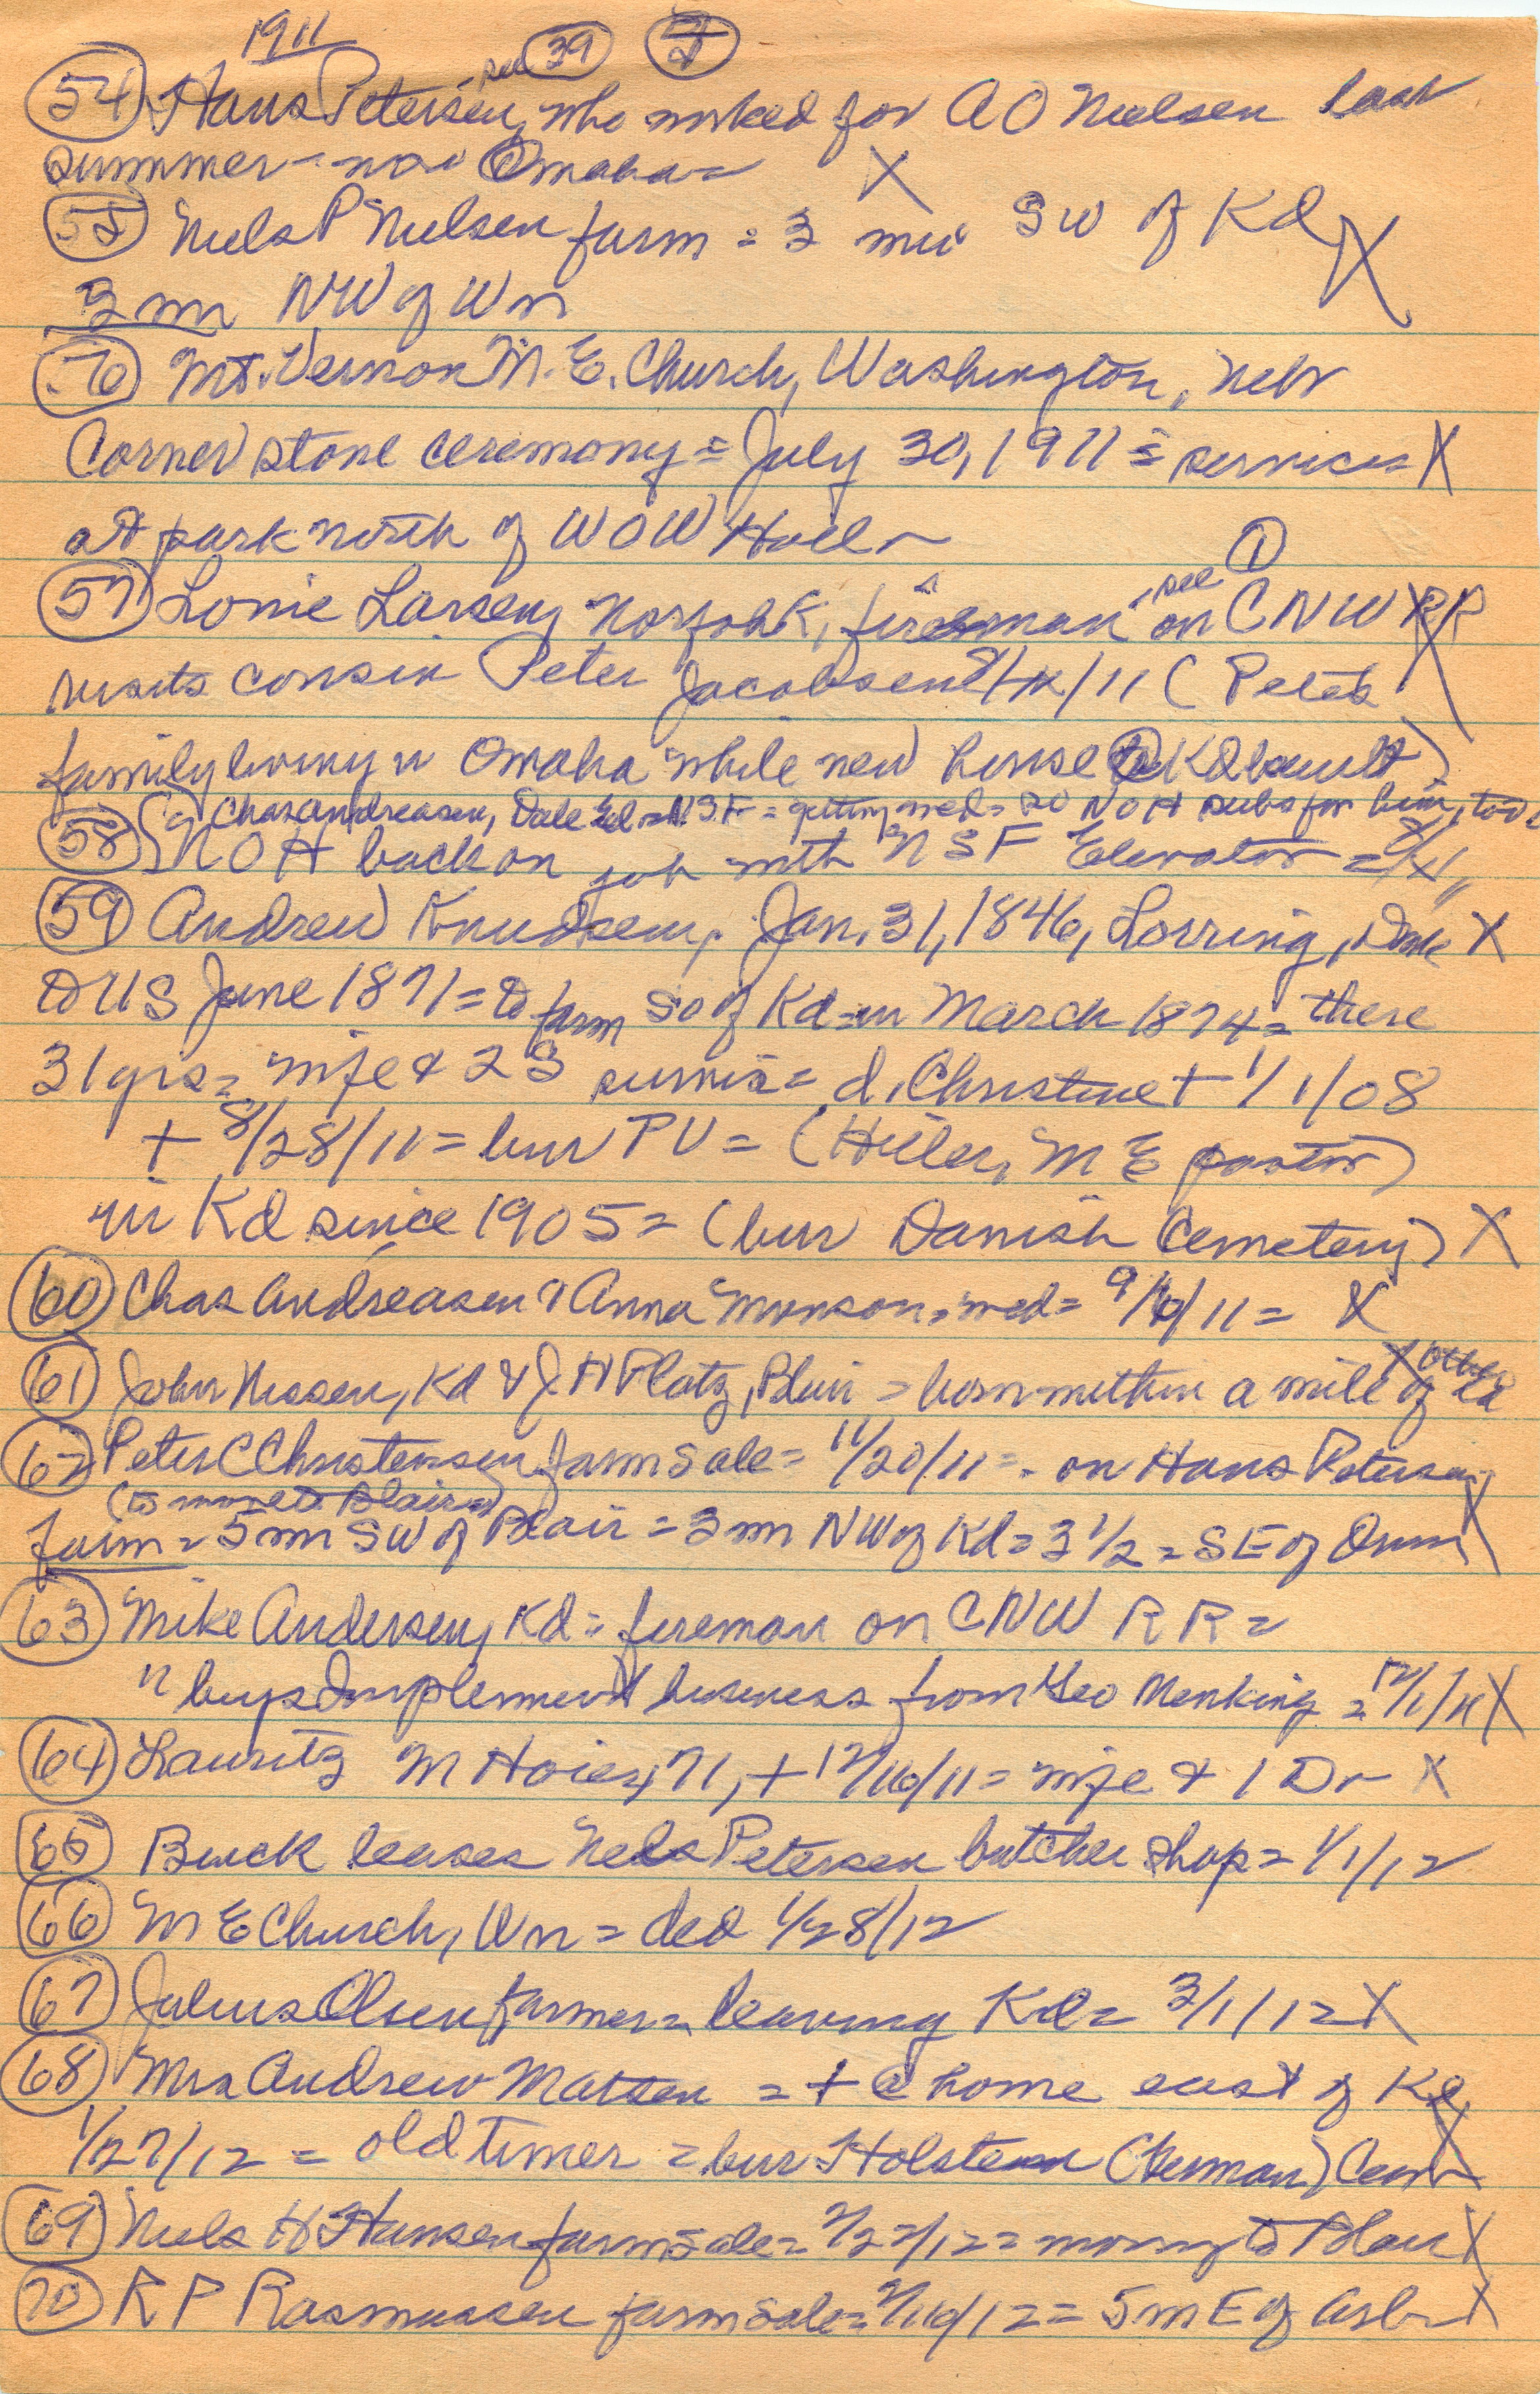 1911
(54) Hans Petersen, - see (39) (7) who worked for A O Nielsen last
summer - now Omaha = X
(55) Niels P Nielsen farm = 3 mi SW of Kd X
3 mi NW of Wn
(56) Mt. Vernon M. E. Church, Washington, Nebr
Corner stone ceremony = July 30, 1911 = services X
at park north of W O W Hall
(57) Lonie Larsen, Norfolk, fireman - see (1) on C N W RR X
visits cousin Peter Jacobsen 8/ /11 (Pete's
family living in Omaha while new house @ Kd built)
Chas Andreasen, Dale El = N.S.F = getting med = so N O H subs for him, too
(58) N O H back on job with N S F Elevator = 
(59) Andrew Knudsen, Jan. 31, 1846, Lorring, Dmk X
to US June 1871 = to farm So of Kd = in March 1874 = there
31 yrs = wife & 2 S survive = d, Christine + 1/1/08
+ 8/28/11 = bur PV = (Hiller, M E pastor)
in Kd since 1905 = (bur Danish Cemetery) X
(60) Chas Andreasen & Anna Monson, med = 9/6/11 = X
(61) John Nissen, Kd & J. H Platz, Blair = born within a mile of ea other X
(62) Peter C Christensen farm sale = 11/20/11 = on Hans Petersen
(to move to Blair)
farm = 5 mi SW of Blair = 3 mi NW of Kd = 3 1/2 = SE of Orum X
(63) Mike Andersen, Kd = fireman on C N W R R =
" buys Implement business from Geo Menking = 12/1/11 X
(64) Lauritz M Hoier, 71, + 12/16/11 = wife & 1 Dr X
(65) Buck leases Nels Petersen butcher shop = 1/1/12
(66) M E Church, Wn = ded 1/28/12
(67) Julius Olsen farmer = leaving Kd = 3/1/12 X
(68) Mrs Andrew Matsen = + @ home east of Kd,
1/27/12 = old timer = bur Holstein (German) Cem X
(69) Niels H Hansen farm sale = 2/27/12 = moving to Blair X
(70) R P Rasmussen farm sale = 2/16/12 = 5 m E of Arl X